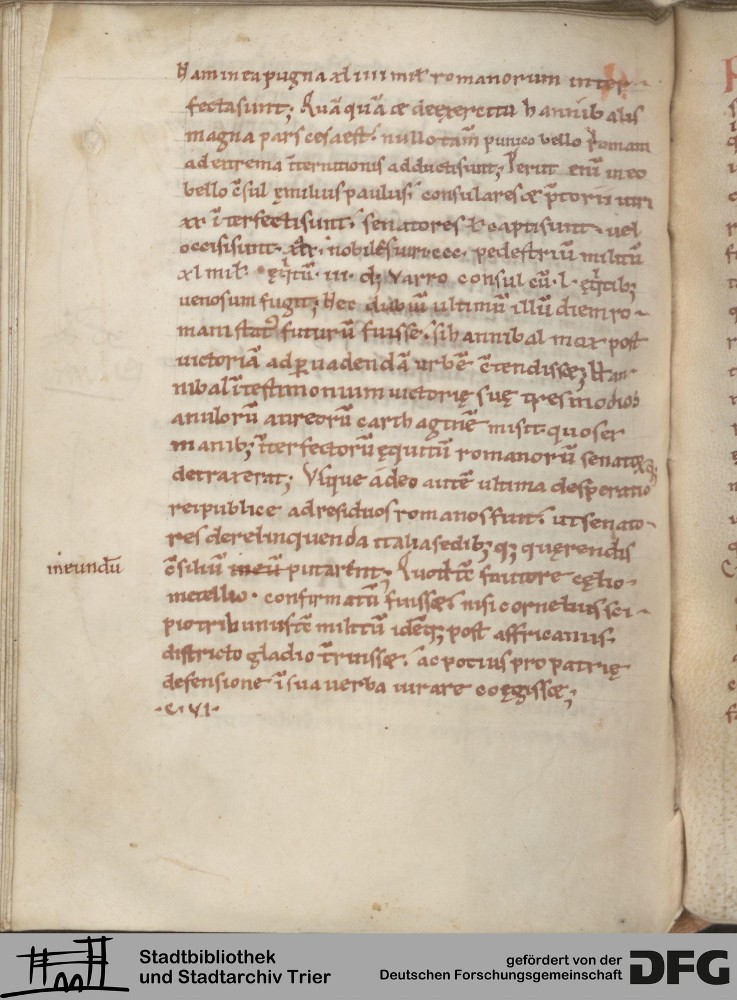 Nam in ea pugna xliiii mił romanorum inter-
fectasunt; Quāquā & deexercitu hannibalis
magna pars cesaest. nullo tam̄ punico bello Romani
ad extrema īternitionis adductisunt; Periit enī in eo
bello c̄sul ęmilius paulus. consulares & p̄torii uiri
xx īterfectisunt. senatores ł captisunt. uel
occisisunt. xxx. nobiles uiri ccc. pedestriū militū
xl mił. eq̄tū. iii. d; Varro consul cū. l. eq̄tib;
uenosum fugit; Hec dubiū ultimū illū diem ro-
mani stat' futurū fuisse. si hannibal mox post
uictoriā ad ꝑuadendā urbē c̄tendisset; Han-
nibal ī testimonium uictorię suę tres modios
anulorū aureorū carthaginē misit. quos er
manib; īterfectorū equitū romanorū senatorūq;
detraxerat; Vsque adeo autē ultima desperatio
reipublice ad residuos romanos fuit. ut senato-
res derelinquenda italia sedib; q; querendis
ineundū
c̄siliū ineū putarent; Quod tc̄ auctore cęlio
metello. confirmatū fuisset nisi cornelius sci-
pio tribunus tc̄ militū idēq; post affricanus.
districto gladio tr̄ruisset. ac potius pro patrię
defensione ī sua uerba iurare coęgisset;
.c. vi.
Stadtbibliothek
und Stadtarchiv Trier
gefördert von der
Deutschen Forschungsgemeinschaft
DFG